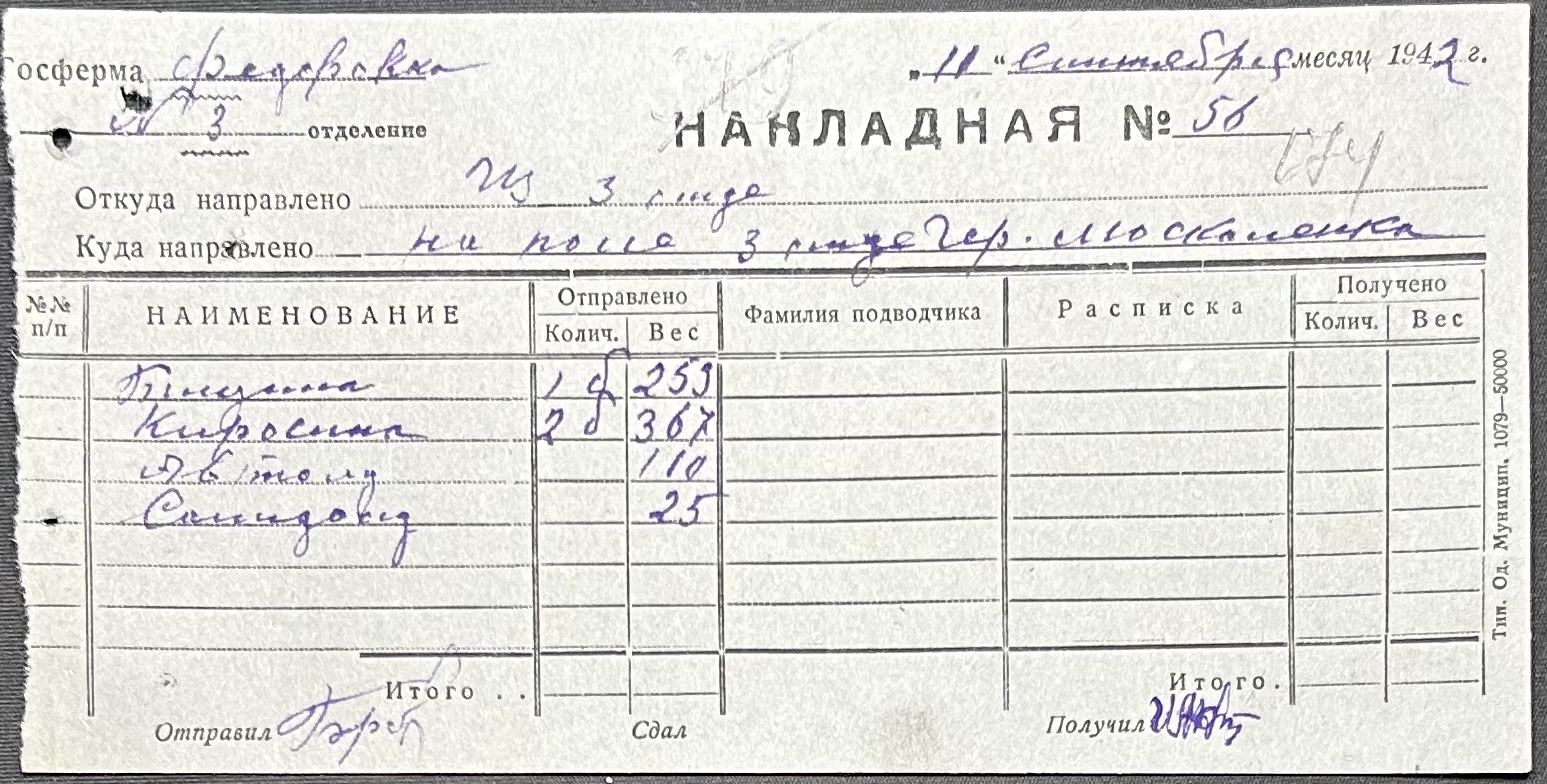 Госферма Федоровка „11“ Сентября месяц 1942 г.
№ 3 отделение
НАКЛАДНАЯ № 56
174
Откуда направлено Из 3 отде
Куда направлено на поле 3 отде Гр. Москаленка
№№ п/п НАИМЕНОВАНИЕ Отправлено Колич. Вес Фамилия подводчика Расписка Получено Колич. Вес
Бинзина 1 б 253
Киросина 2 б 367
Автолу 110
Салидолу 25
Итого . . Итого .
Отправил Сдал Получил
Тип. Од. Муницип. 1079—50000